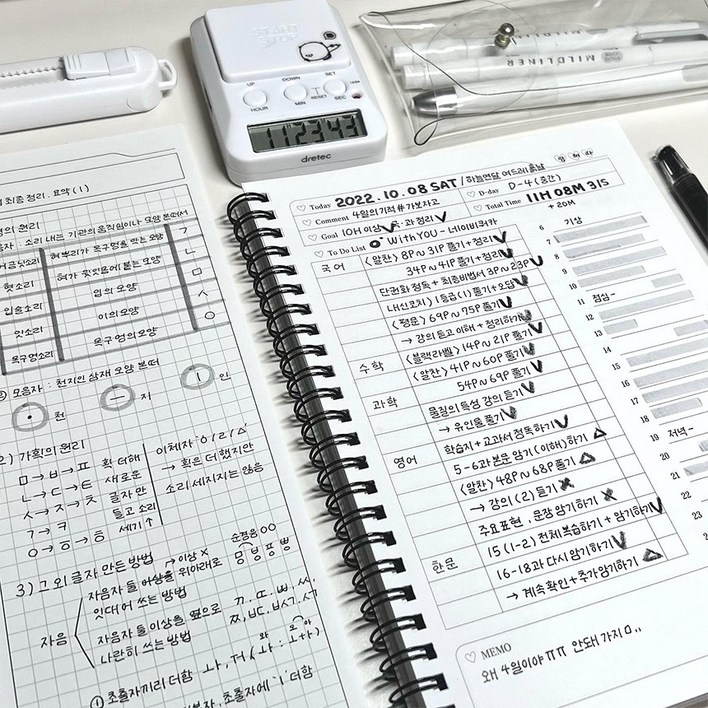 MILDLINER
MILDLINER
UP
DOWN
SET
HOUR
MIN
RESET
SEC
112343
dretec
최종 정리. 요약(1)
ㄱ
혀뿌리가 목구멍을 막는 모양
ㄴ
혓소리
혀가 윗잇몸에 붙는 모양
ㅁ
입술소리
입의 모양
ㅅ
잇소리
이의 모양
ㅇ
목구멍소리
목구멍의 모양
모음자 : 천지인 삼재 모양 본떠
· 천
ㅡ 지
ㅣ 인
2) 가획의 원리
ㅁ → ㅂ → ㅍ
ㄴ → ㄷ → ㅌ
ㅅ → ㅈ → ㅊ
ㄱ → ㅋ
ㅇ → ㆆ → ㅎ
획 더해
새로운
글자 만
들고 소리
세기↑
이체자
→ 획은 더했지만
소리 세지지는 않음
3) 그 외 글자 만든 방법
자음
자음자 둘 이상을 위아래로
잇대어 쓰는 방법
→ 이상 X
순경음
자음자 둘 이상을 옆으로
나란히 쓰는 방법
① 초출자끼리 더함
초출자에 'ㅣ' 더함
Today 2022. 10. 08 SAT
Comment 4월의 기적 #가보자고
D-day D-4 (중간)
Goal 10H 이상
Total Time 11H 08M 31S
+ 20M
To Do List
With YOU - 네이비쿼카
국어
<알찬> 8P~31P 풀기+정리 V
34P~41P 풀기+정리 V
단권화 정독 + 최종비법서 3P~23P V
내신코치) 1등급(1) 풀기+오답 V
<평문> 69P~75P 풀기 V
→ 강의 듣고 이해 + 정리하기 V
수학
<블랙라벨> 14P~21P 풀기 V
<알찬> 41P~60P 풀기 V
54P~69P 풀기 V
과학
물질의 특성 강의 듣기 V
→ 유인물 풀기 V
학습지+교과서 정독하기 V
영어
5-6과 본문 암기(이해)하기 △
<알찬> 48P~68P 풀기 △
→ 강의(2) 듣기 X
주요표현, 문장 암기하기 X
한문
15(1-2) 전체 복습하기 + 암기하기 V
16-18과 다시 암기하기 V
→ 계속 확인+추가암기하기 △
6 기상
7
8
9
10
11
12 점심-
13
14
15
16
17
18
19 저녁-
20
21
22
23
24
MEMO
왜 4월이야 ㅠㅠ 안돼 가지 ㅁ..